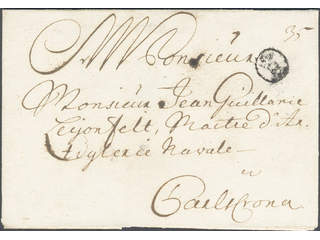 Monsieur 35
Monsieur Jean Guillaume
Leijonfelt, Maitre d'Ar,
tiglerie Navale
a
Carlscrona